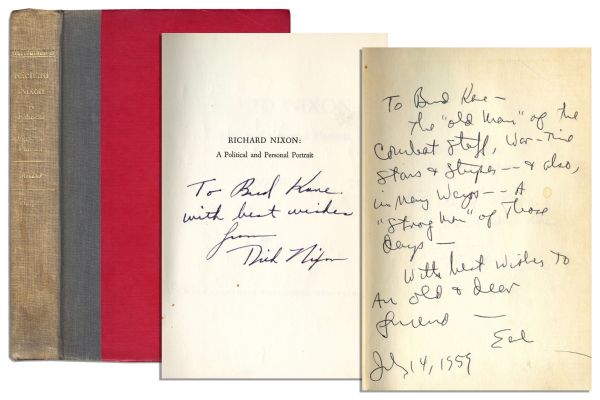 Richard
Nixon
A
Political
and
Personal
Portrait
MAZO
RICHARD NIXON:
A Political and Personal Portrait
To Bud Kane
with best wishes
from
Dick Nixon
To Bud Kane —
The "old Man" of the
Combat Staff, War-Time
Stars & Stripes -- & also,
in Many Ways -- A
"Strong Man" of Those
days —
With best Wishes To
An old & dear
friend —
Earl
July 14, 1959